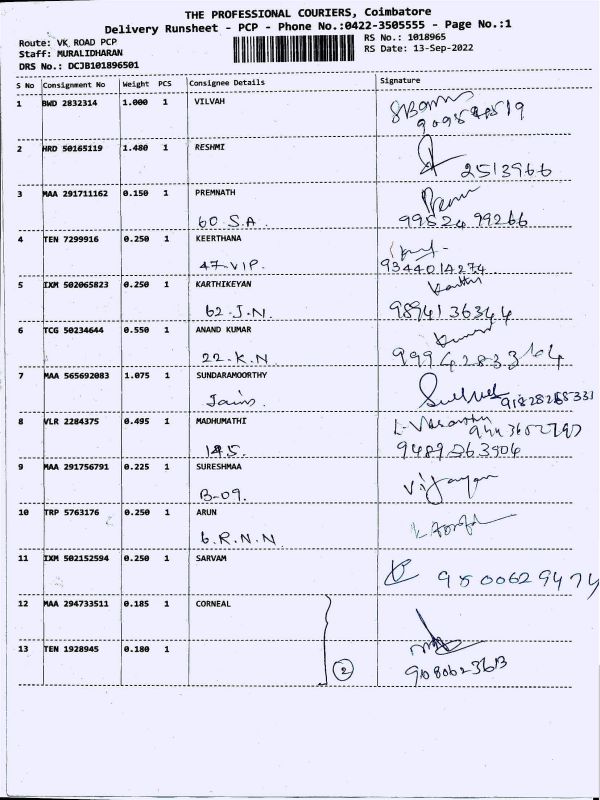 THE PROFESSIONAL COURIERS, Coimbatore
Delivery Runsheet - PCP - Phone No.:0422-3505555 - Page No.:1
Route: VK ROAD PCP
RS No.: 1018965
Staff: MURALIDHARAN
RS Date: 13-Sep-2022
DRS No.: DCJB101896501
S No Consignment No Weight PCS Consignee Details Signature
1 BWD 2832314 1.000 1 VILVAH
2 HRD 50165119 1.480 1 RESHMI
2513966
3 MAA 291711162 0.150 1 PREMNATH Prem
60 S.A. 99524 99266
4 TEN 7299916 0.250 1 KEERTHANA
47-VIP. 9344014274
5 IXM 502065823 0.250 1 KARTHIKEYAN
62-J.N. 9894136344
6 TCG 50234644 0.550 1 ANAND KUMAR
22-K.N
7 MAA 565692083 1.075 1 SUNDARAMOORTHY
Jains.
8 VLR 2284375 0.495 1 MADHUMATHI
145. 9489263906
9 MAA 291756791 0.225 1 SURESHMAA
B-09.
10 TRP 5763176 0.250 1 ARUN
6.R.N.N
11 IXM 502152594 0.250 1 SARVAM
9500629474
12 MAA 294733511 0.185 1 CORNEAL
13 TEN 1928945 0.180 1
2 9080623613